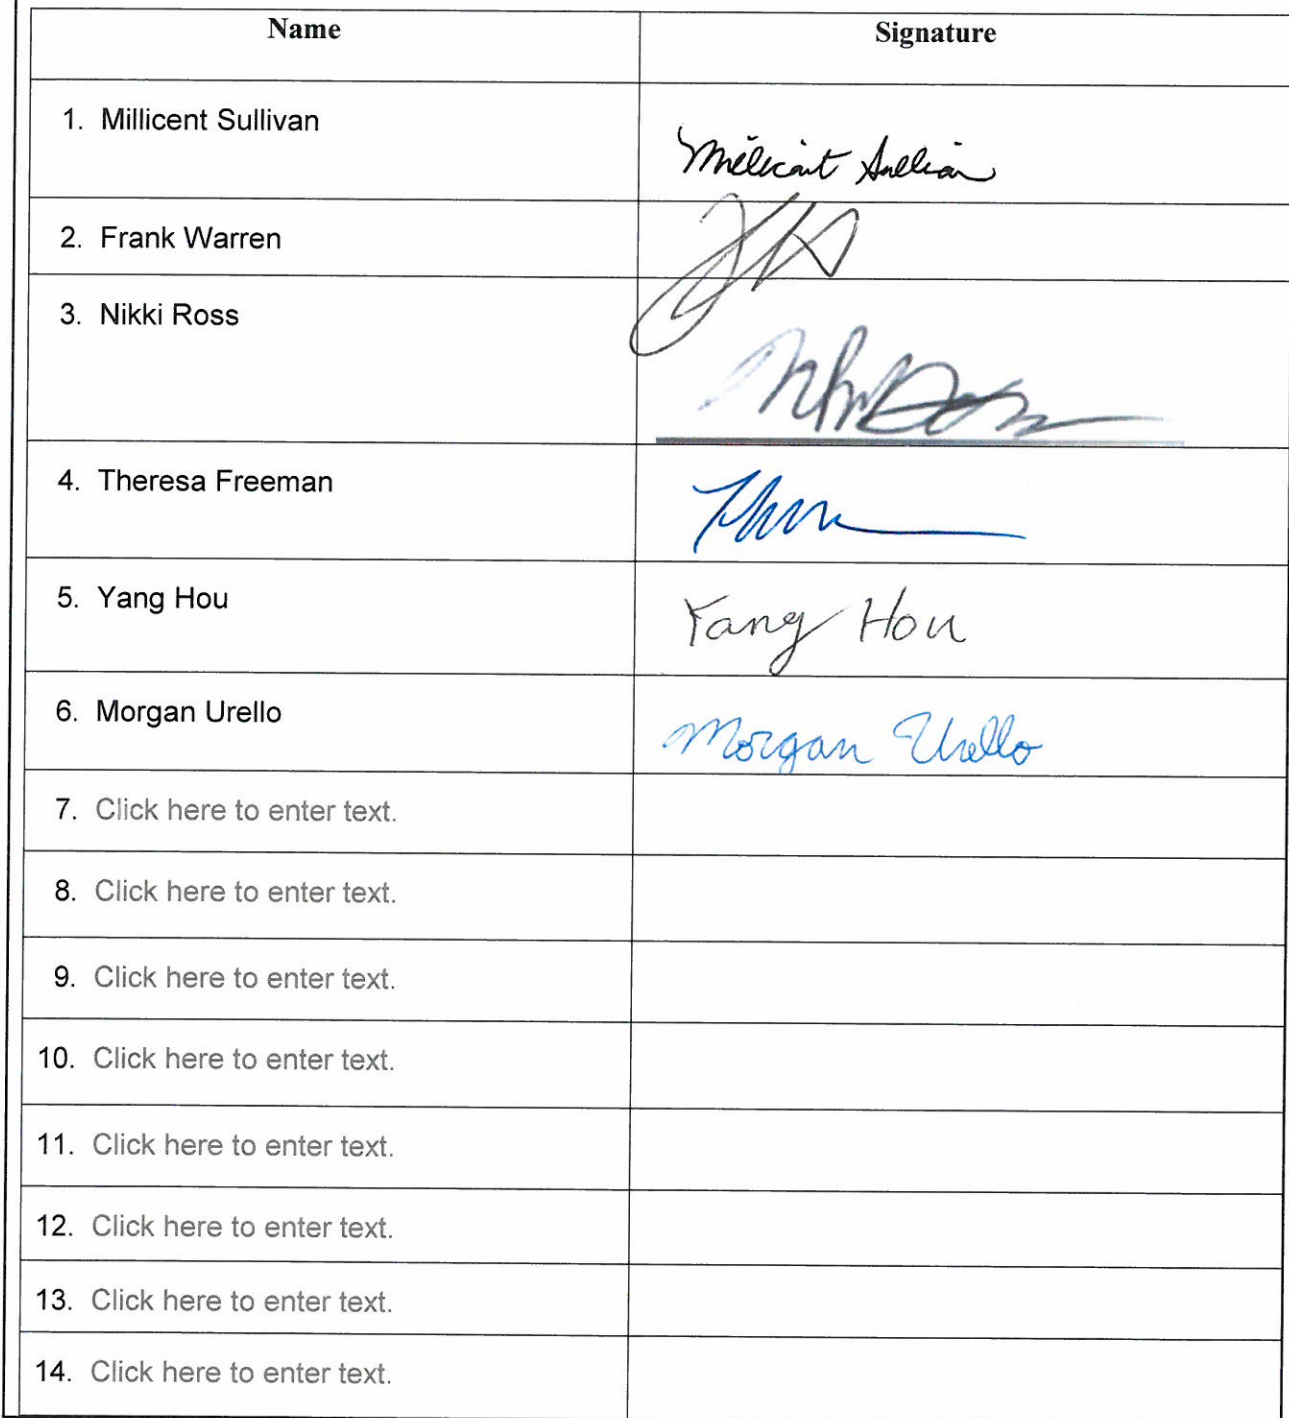 Name Signature
1. Millicent Sullivan Millicent Sullivan
2. Frank Warren
3. Nikki Ross
4. Theresa Freeman
5. Yang Hou Yang Hou
6. Morgan Urello Morgan Urello
7. Click here to enter text.
8. Click here to enter text.
9. Click here to enter text.
10. Click here to enter text.
11. Click here to enter text.
12. Click here to enter text.
13. Click here to enter text.
14. Click here to enter text.